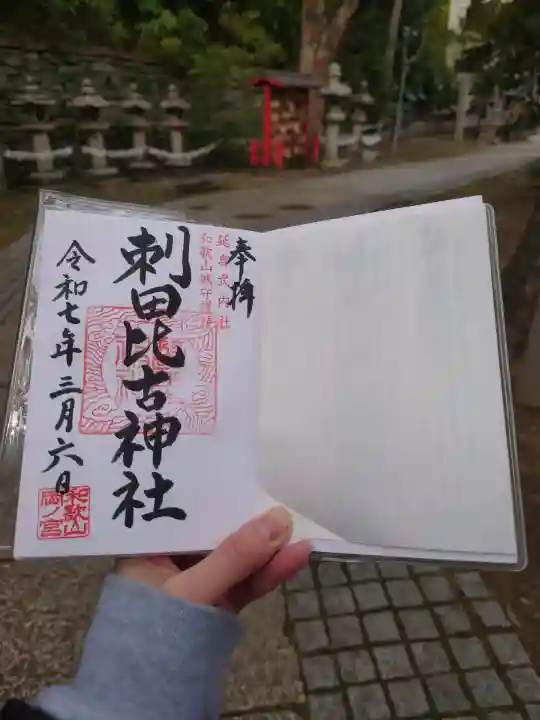 奉拝
延喜式内社
和歌山城守護神
刺田比古神社
令和七年三月六日
和歌山
岡ノ宮